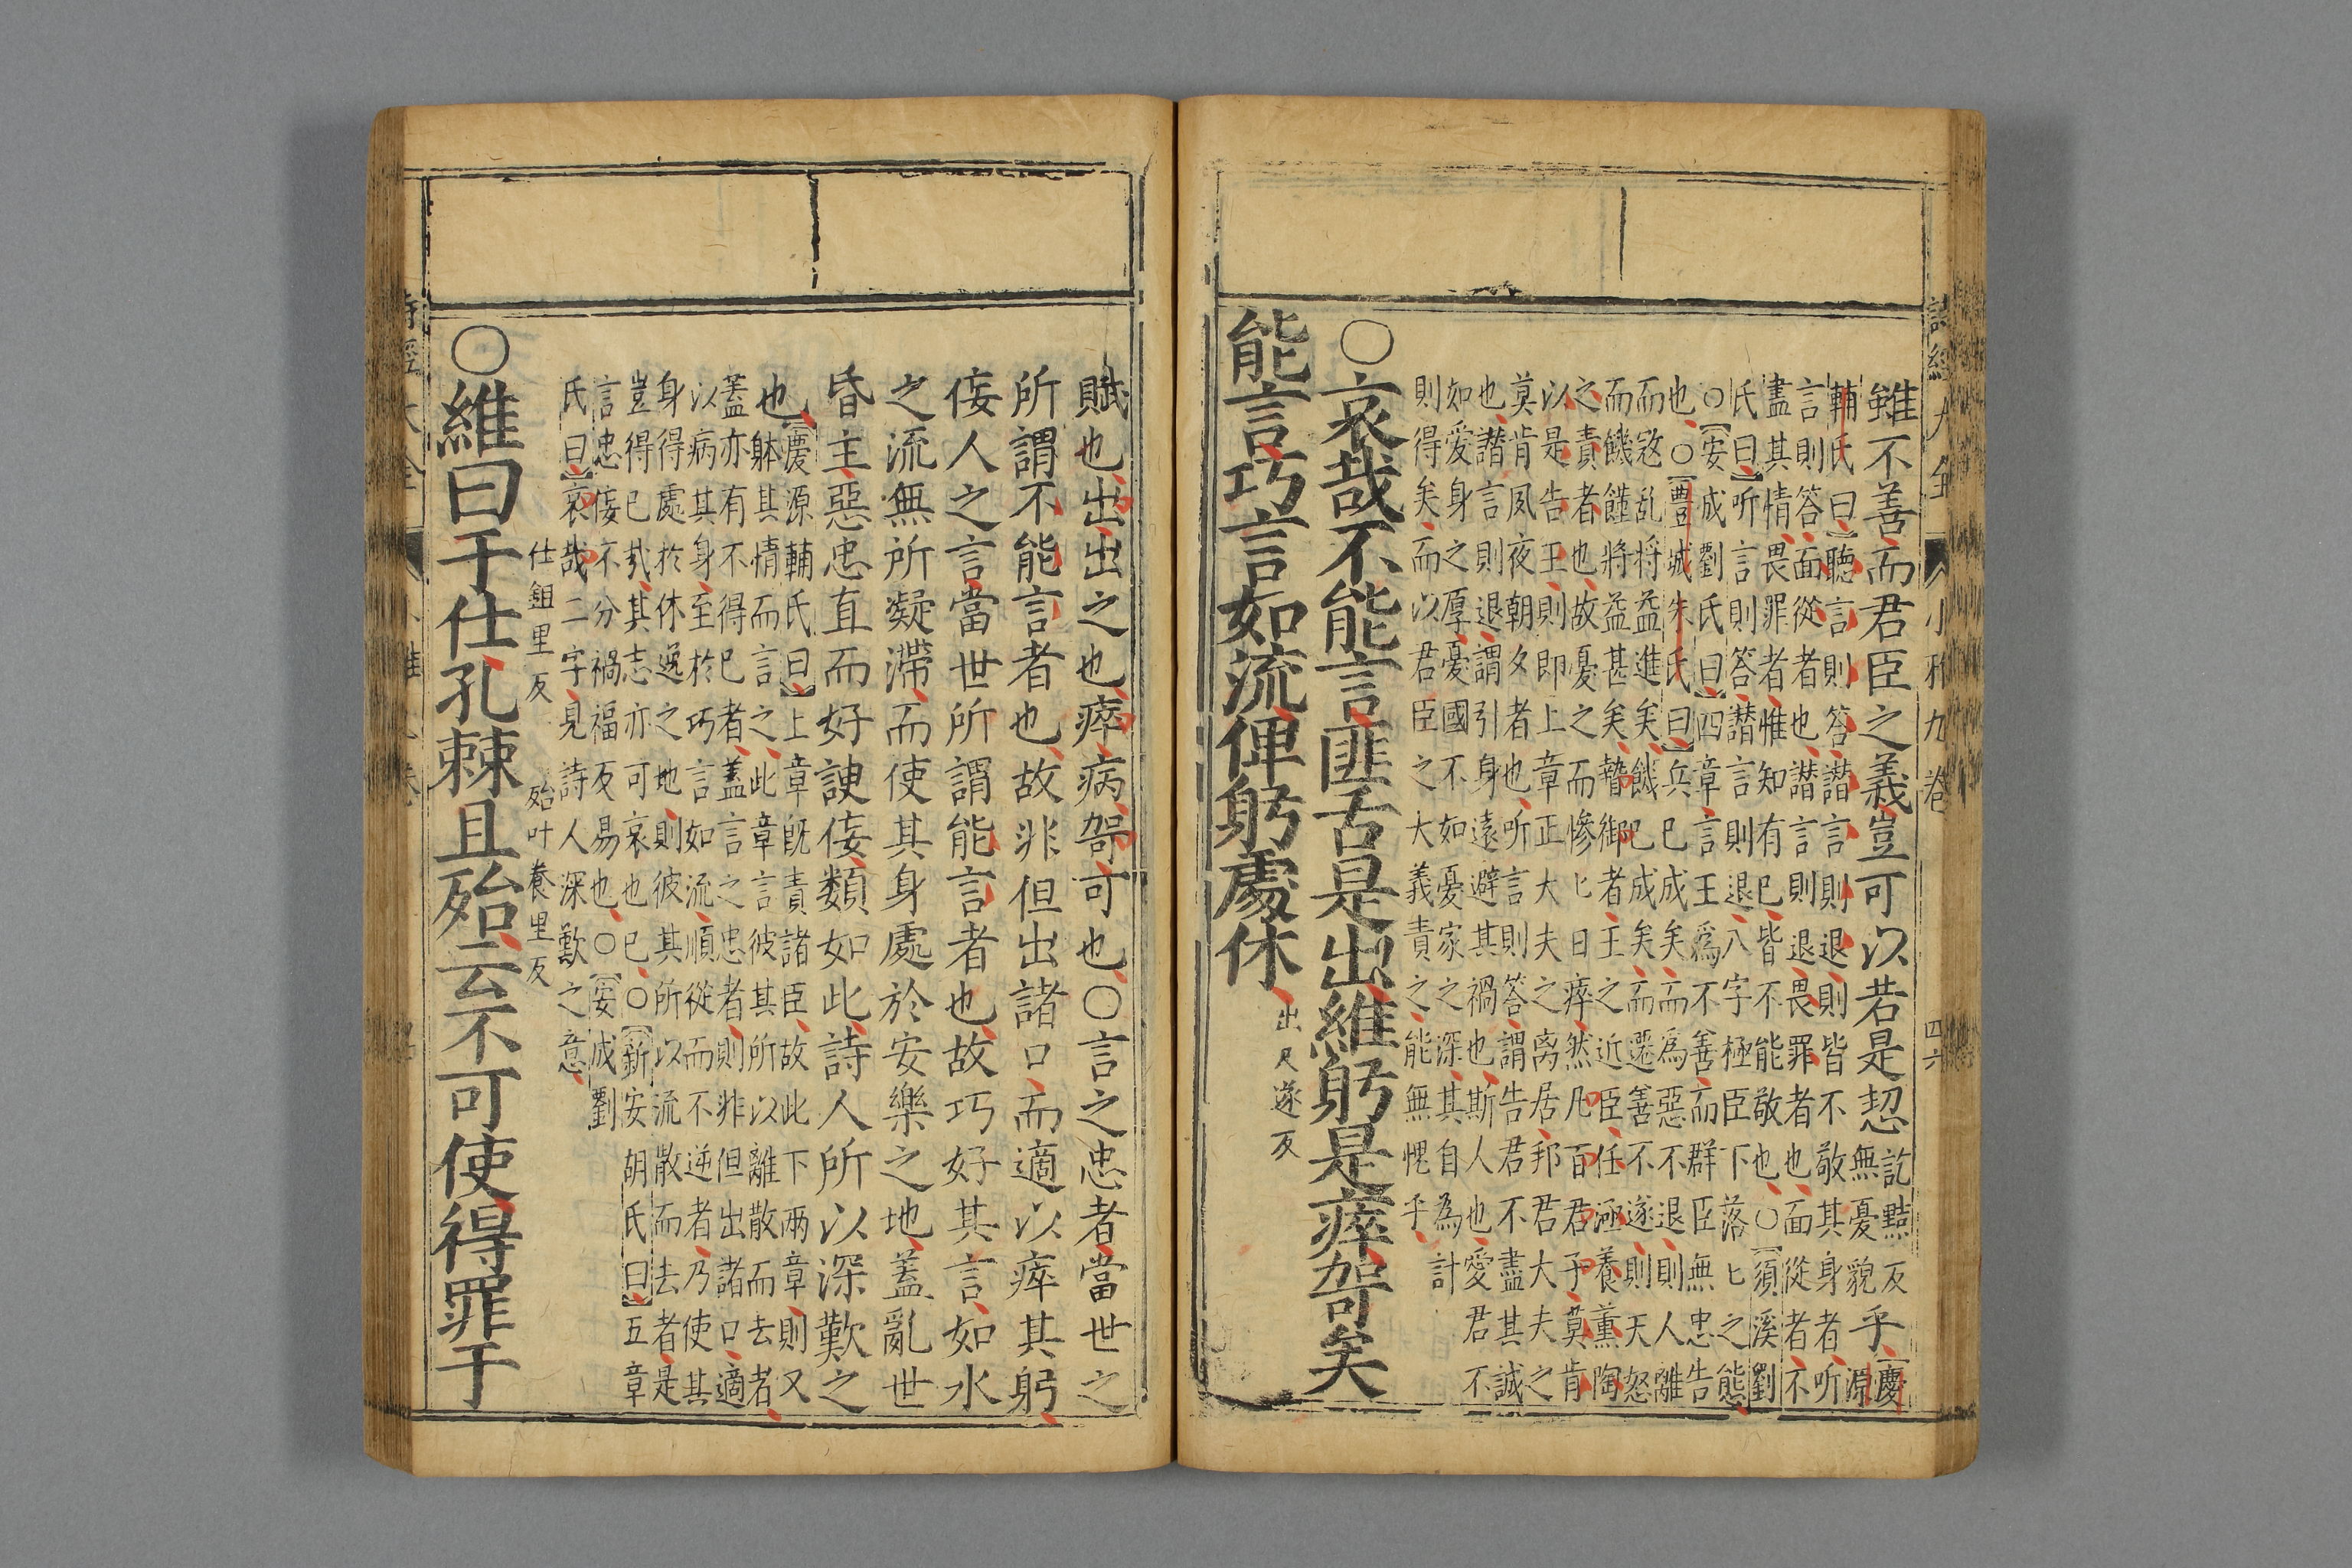 雖不善而君臣之義豈可以若是恝
訖黠反
無憂貌
乎
慶
源
輔氏曰聽言則答譖言則退則皆不敬其身者听
言則答面從者也譖言則退畏罪者也面從者不
盡其情畏罪者惟知有巳皆不能敬也○須溪劉
氏曰听言則答譖言則退八字極臣下落匕之態
○安成劉氏曰四章言王爲不善而群臣無忠告
也○豐城朱氏曰兵巳成矣而爲惡不退則人離
而寇乱将益進矣饑巳成矣而遷善不遂則天怒
而饑饉將益甚矣暬御者王之近臣任涵養薫陶
之責者也故憂之而慘匕日瘁然凡百君子莫肯
以是告王則即上章正大夫之离居邦君大夫之
莫肯夙夜朝夕者也听言則答謂告君不盡其誠
也譖言則退謂引身遠避其禍也斯人也愛君不
如愛身之厚憂國不如憂家之深其自為計
則得矣而以君臣之大義責之能無愧乎
○哀哉不能言匪舌是出維躬是瘁哿矣
能言巧言如流俾躬處休
出尺遂反
賦也出出之也瘁病哿可也○言之忠者當世之
所謂不能言者也故非但出諸口而適以瘁其躬
侫人之言當世所謂能言者也故巧好其言如水
之流無所凝滯而使其身處於安樂之地蓋亂世
昏主惡忠直而好諛侫類如此詩人所以深歎之
也
慶源輔氏曰上章旣責諸臣故此下兩章則又
躰其情而言之此章言彼其所以離散而去者
蓋亦有不得巳者蓋言之忠者則非但出諸口適
以病其身至於巧言如流順從而不逆者乃使其
身得處於休逸之地則彼其所以流散而去者是
豈得巳㢤其志亦可哀也巳○新安胡氏曰五章
言忠侫不分禍福反易也○安成劉
氏曰哀哉二字見詩人深歎之意
○維曰于仕孔棘且殆云不可使得罪于
仕鉏里反 殆叶養里反
詩經大全 小雅九卷 四六